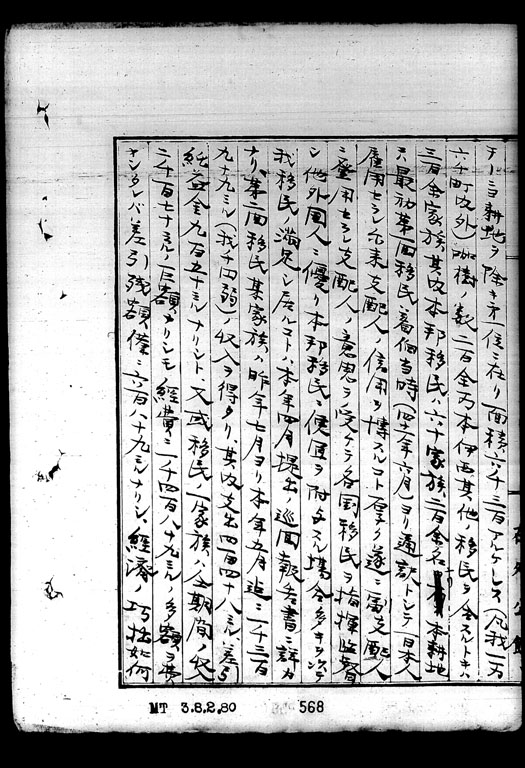 チーニヨ耕地ヲ除キ第一位ニ在リ面積六千三百アルケーレス(凡我一万
六千町内外)珈琲樹ノ数二百余万本伊西其他ノ移民ヲ合スルトキハ
三百余家族其内本邦移民六六十家族二百余名本耕地
ハ最初第一回移民着伯当時(四十一年六月)ヨリ通訳トシテ一日本人
雇用セラレ尓来支配人ノ信用ヲ博スルコト厚ク遂ニ副支配人
ニ登用セラレ支配人ノ意思ヲ受ケテ各国移民ヲ指揮監督
シ他外国人ニ優リ本邦移民ニ便宜ヲ附与スル場合多キヲ以テ
我移民ノ満足シ居ルコトハ本年四月提出ノ巡回報告書ニ詳カ
ナリ第一回移民某家族ハ昨年七月ヨリ本年五月迄ニ一千三百
九十九ミル(我千円弱)ノ収入ヲ得タリ其内支出四百四十八ミル差引
純益金九百五十ミルナリシト、又或移民一家族ハ仝期間ノ収入
二千百七十ミルノ巨額ナリシモ経費ニ一千四百八十九ミルノ多額ヲ費
ヤシタレバ差引残額僅ニ六百八十九ミルナリシ、経済ノ巧拙如何
在外公館
MT 3.8.2.80
568